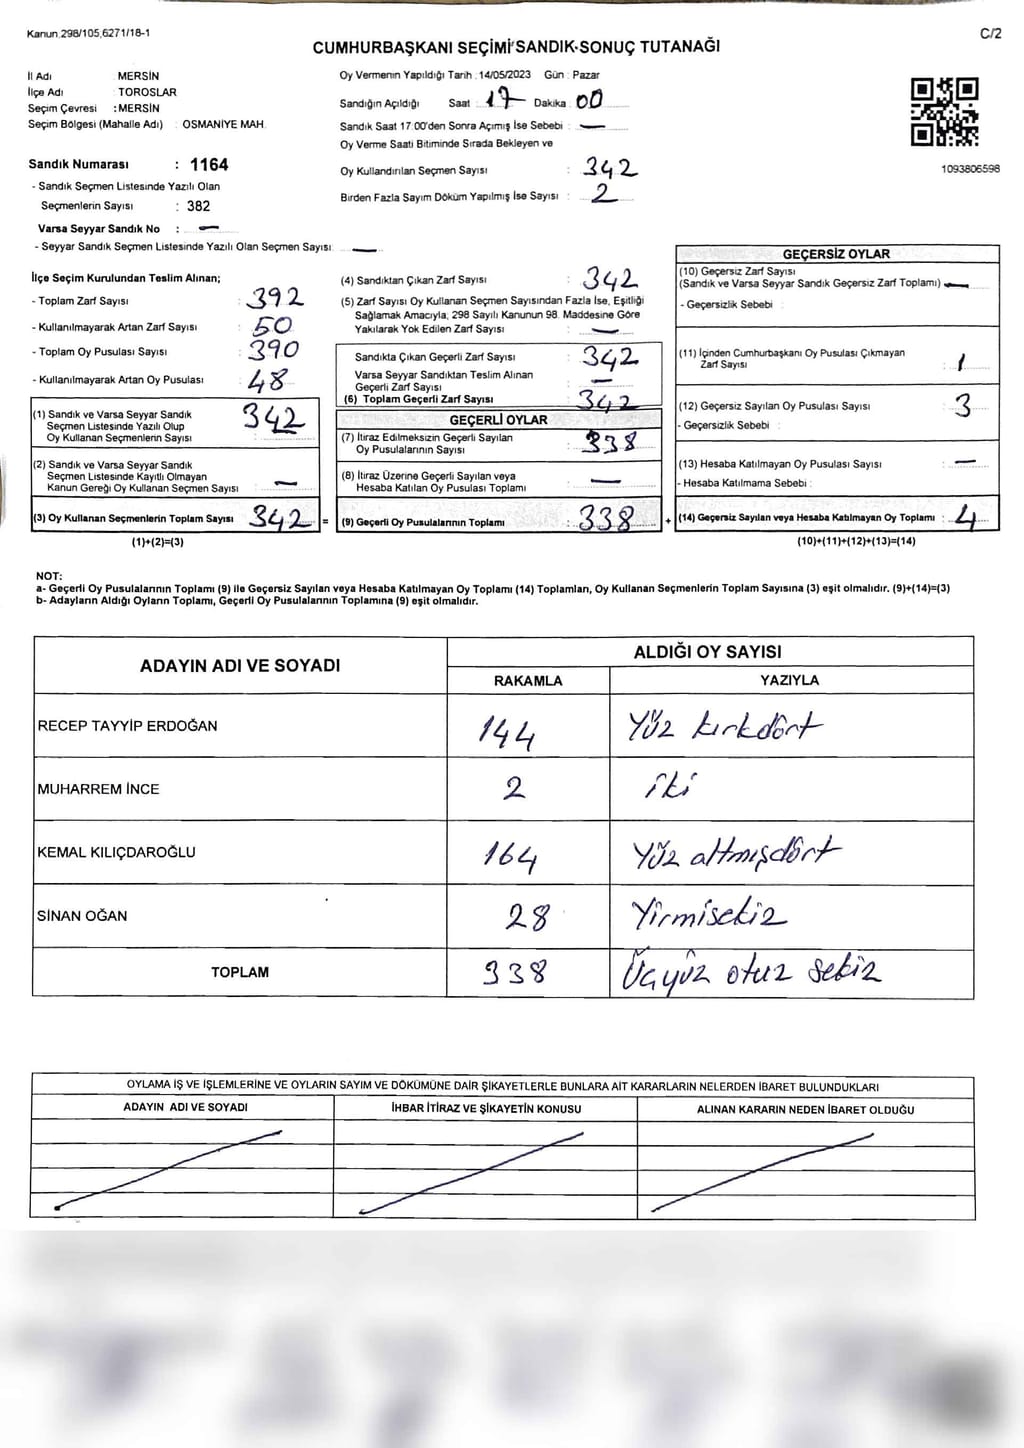 Kanun.298/105,6271/18-1
C/2
CUMHURBAŞKANI SEÇİMİ SANDIK SONUÇ TUTANAĞI
İl Adı MERSİN
İlçe Adı TOROSLAR
Seçim Çevresi : MERSİN
Seçim Bölgesi (Mahalle Adı) : OSMANİYE MAH.
Sandık Numarası : 1164
- Sandık Seçmen Listesinde Yazılı Olan
Seçmenlerin Sayısı : 382
Varsa Seyyar Sandık No : —
- Seyyar Sandık Seçmen Listesinde Yazılı Olan Seçmen Sayısı: —
Oy Vermenin Yapıldığı Tarih : 14/05/2023 Gün : Pazar
Sandığın Açıldığı Saat : 17 Dakika : 00
Sandık Saat 17:00'den Sonra Açımış İse Sebebi : —
Oy Verme Saati Bitiminde Sırada Bekleyen ve
Oy Kullandırılan Seçmen Sayısı : 342
Birden Fazla Sayım Döküm Yapılmış İse Sayısı : 2
1093806598
İlçe Seçim Kurulundan Teslim Alınan;
- Toplam Zarf Sayısı : 392
- Kullanılmayarak Artan Zarf Sayısı : 50
- Toplam Oy Pusulası Sayısı : 390
- Kullanılmayarak Artan Oy Pusulası : 48
(1) Sandık ve Varsa Seyyar Sandık
Seçmen Listesinde Yazılı Olup
Oy Kullanan Seçmenlerin Sayısı : 342
(2) Sandık ve Varsa Seyyar Sandık
Seçmen Listesinde Kayıtlı Olmayan
Kanun Gereği Oy Kullanan Seçmen Sayısı : —
(3) Oy Kullanan Seçmenlerin Toplam Sayısı : 342 =
(1)+(2)=(3)
(4) Sandıktan Çıkan Zarf Sayısı : 342
(5) Zarf Sayısı Oy Kullanan Seçmen Sayısından Fazla İse, Eşitliği
Sağlamak Amacıyla, 298 Sayılı Kanunun 98. Maddesine Göre
Yakılarak Yok Edilen Zarf Sayısı : —
Sandıkta Çıkan Geçerli Zarf Sayısı : 342
Varsa Seyyar Sandıktan Teslim Alınan
Geçerli Zarf Sayısı : —
(6) Toplam Geçerli Zarf Sayısı : 342
GEÇERLİ OYLAR
(7) İtiraz Edilmeksizin Geçerli Sayılan
Oy Pusulalarının Sayısı : 338
(8) İtiraz Üzerine Geçerli Sayılan veya
Hesaba Katılan Oy Pusulası Toplamı : —
(9) Geçerli Oy Pusulalarının Toplamı : 338 +
GEÇERSİZ OYLAR
(10) Geçersiz Zarf Sayısı
(Sandık ve Varsa Seyyar Sandık Geçersiz Zarf Toplamı) : —
- Geçersizlik Sebebi :
(11) İçinden Cumhurbaşkanı Oy Pusulası Çıkmayan
Zarf Sayısı : 1
(12) Geçersiz Sayılan Oy Pusulası Sayısı : 3
- Geçersizlik Sebebi :
(13) Hesaba Katılmayan Oy Pusulası Sayısı : —
- Hesaba Katılmama Sebebi :
(14) Geçersiz Sayılan veya Hesaba Katılmayan Oy Toplamı : 4
(10)+(11)+(12)+(13)=(14)
NOT:
a- Geçerli Oy Pusulalarının Toplamı (9) ile Geçersiz Sayılan veya Hesaba Katılmayan Oy Toplamı (14) Toplamları, Oy Kullanan Seçmenlerin Toplam Sayısına (3) eşit olmalıdır. (9)+(14)=(3)
b- Adayların Aldığı Oyların Toplamı, Geçerli Oy Pusulalarının Toplamına (9) eşit olmalıdır.
ADAYIN ADI VE SOYADI
ALDIĞI OY SAYISI
RAKAMLA YAZIYLA
RECEP TAYYİP ERDOĞAN 144 Yüz kırkdört
MUHARREM İNCE 2 iki
KEMAL KILIÇDAROĞLU 164 Yüz altmışdört
SİNAN OĞAN 28 Yirmisekiz
TOPLAM 338 Üçyüz otuz sekiz
OYLAMA İŞ VE İŞLEMLERİNE VE OYLARIN SAYIM VE DÖKÜMÜNE DAİR ŞİKAYETLERLE BUNLARA AİT KARARLARIN NELERDEN İBARET BULUNDUKLARI
ADAYIN ADI VE SOYADI İHBAR İTİRAZ VE ŞİKAYETİN KONUSU ALINAN KARARIN NEDEN İBARET OLDUĞU